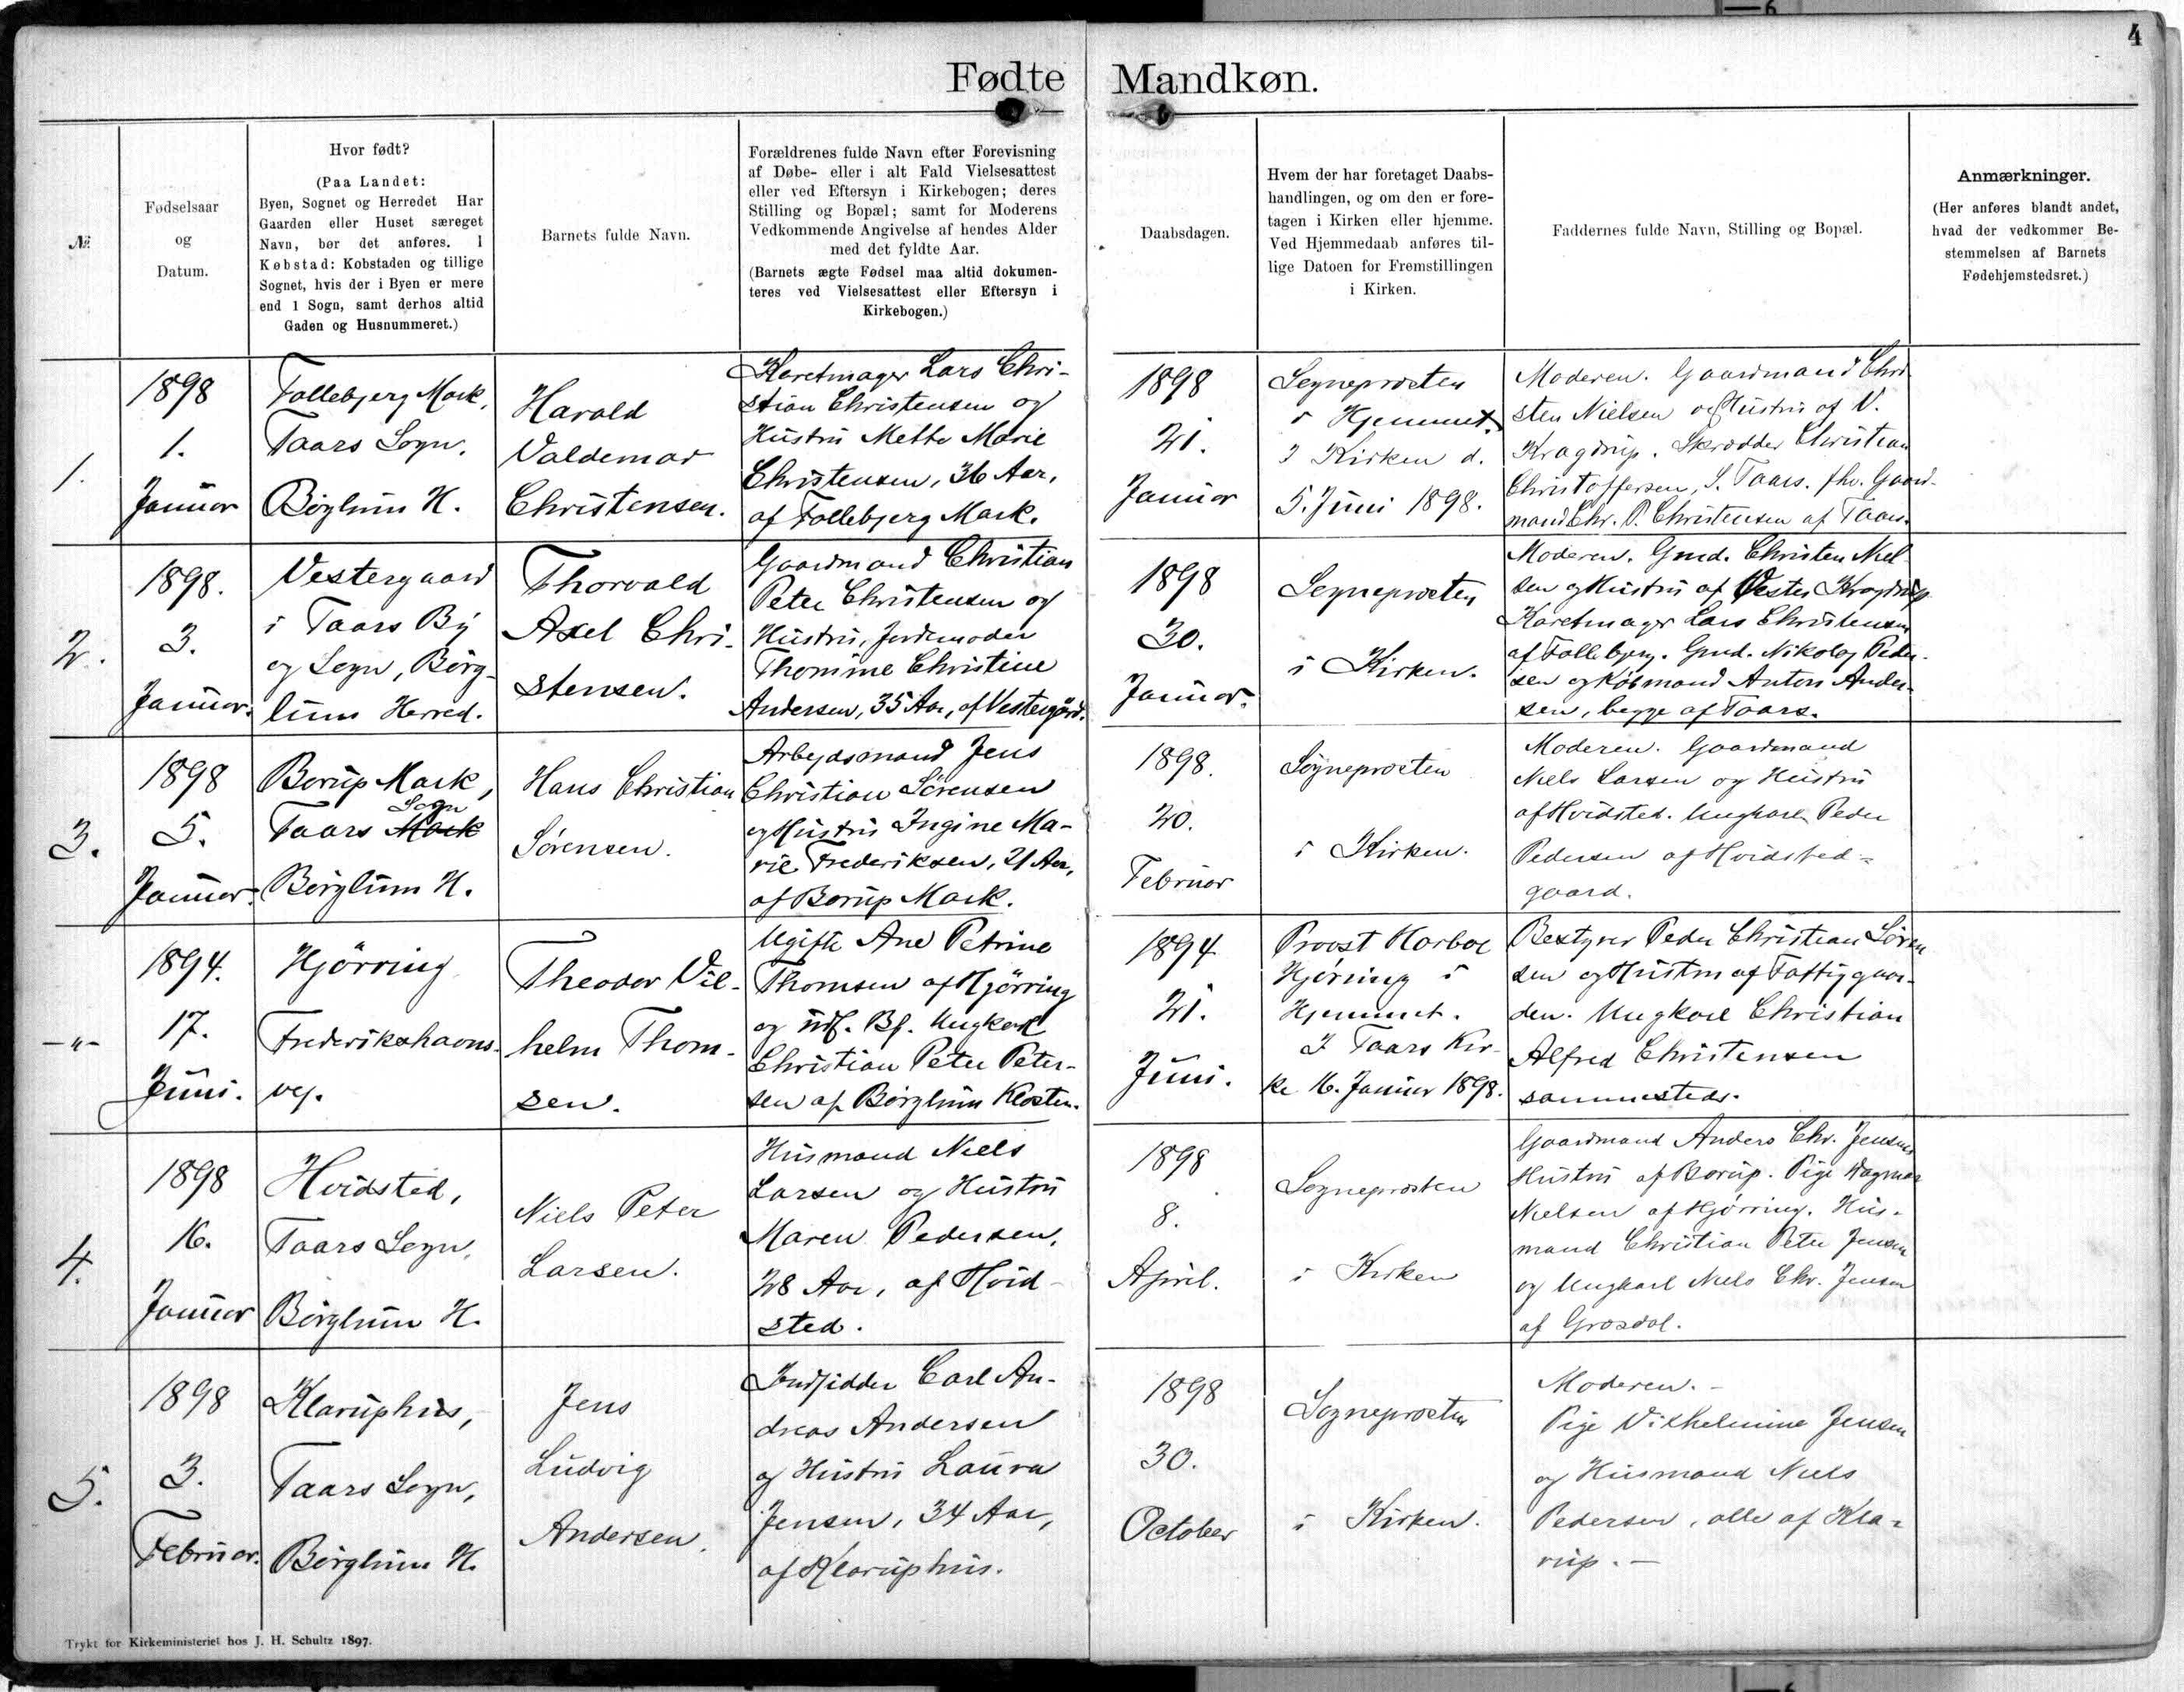 4
Fødte Mandkøn.
№
Fødselsaar
og
Datum.
Hvor født?
(Paa Landet:
Byen, Sognet og Herredet Har
Gaarden eller Huset særeget
Navn, bør det anføres. I
Købstad: Købstaden og tillige
Sognet, hvis der i Byen er mere
end 1 Sogn, samt derhos altid
Gaden og Husnummeret.)
Barnets fulde Navn.
Forældrenes fulde Navn efter Forevisning
af Døbe- eller i alt Fald Vielsesattest
eller ved Eftersyn i Kirkebogen; deres
Stilling og Bopæl; samt for Moderens
Vedkommende Angivelse af hendes Alder
med det fyldte Aar.
(Barnets ægte Fødsel maa altid dokumen-
teres ved Vielsesattest eller Eftersyn i
Kirkebogen.)
Daabsdagen.
Hvem der har foretaget Daabs-
handlingen, og om den er fore-
tagen i Kirken eller hjemme.
Ved Hjemmedaab anføres til-
lige Datoen for Fremstillingen
i Kirken.
Faddernes fulde Navn, Stilling og Bopæl.
Anmærkninger.
(Her anføres blandt andet,
hvad der vedkommer Be-
stemmelsen af Barnets
Fødehjemstedsret.)
1.
1898
1.
Januar
Follebjerg Mark,
Taars Sogn,
Börglum H.
Harald
Valdemar
Christensen.
Karetmager Lars Chri-
stian Christensen og
Hustru Mette Marie
Christensen, 36 Aar,
af Follebjerg Mark.
1898
21.
Januar
Sogneprosten
i Hjemmet.
I Kirken d.
5. Juni 1898.
Moderen. Gaardmand Chri-
sten Nielsen og Hustru af V.
Kragdrup. Skrædder Christian
Christoffersen, S. Taars. fhv. Gaard-
mand Chr. P. Christensen af Taars.
2.
1898.
3.
Januar.
Vestergaard
i Taars By
og Sogn, Börg-
lum Herred.
Thorvald
Axel Chri-
stensen.
Gaardmand Christian
Peter Christensen og
Hustru, Jordemoder
Thomine Christine
Andersen, 35 Aar, af Vestergård.
1898
30.
Januar.
Sogneprosten
i Kirken.
Moderen. Gmd. Christen Niel-
sen og Hustru af Vester Kragdrup
Karetmager Lars Christensen
af Follebjerg. Gmd. Nikolaj Peder-
sen og Købmand Anton Ander-
sen, begge af Taars.
3.
1898
5.
Januar.
Borup Mark,
Sogn
Taars Mark
Börglum H.
Hans Christian
Sörensen.
Arbejdsmand Jens
Christian Sörensen
og Hustru Ingine Ma-
rie Frederiksen, 21 Aar,
af Borup Mark.
1898.
20.
Februar
Sogneprosten
i Kirken.
Moderen. Gaardmand
Niels Larsen og Hustru
af Hvidsted. Ungkarl Peder
Pedersen af Hvidsted-
gaard.
-"-
1894.
17.
Juni.
Hjörring
Frederikshavns-
vej.
Theodor Vil-
helm Thom-
sen.
Ugifte Ane Petrine
Thomsen af Hjörring
og udl. Bf. Ungkarl
Christian Peter Peter-
sen af Börglum Kloster.
1894
21.
Juni.
Provst
Hjörring i
Hjemmet.
I Taars Kir-
ke 16. Januar 1898.
Bestyrer Peder Christian Sören-
sen og Hustru af Fattiggaar-
den. Ungkarl Christian
Alfred Christensen
sammesteds.
4.
1898
16.
Januar
Hvidsted,
Taars Sogn,
Börglum H.
Niels Peter
Larsen.
Husmand Niels
Larsen og Hustru
Maren Pedersen,
28 Aar, af Hvid-
sted.
1898
8.
April.
Sogneprosten
i Kirken
Gaardmand Anders Chr. Jensens
Hustru af Borup. Pige Dagmar
Nielsen af Hjörring. Hus-
mand Christian Peter Jensen
og Ungkarl Niels Chr. Jensen
af Græsdal.
5.
1898
3.
Februar.
Klaruphus,
Taars Sogn,
Börglum H.
Jens
Ludvig
Andersen.
Indsidder Carl An-
dreas Andersen
og Hustru Laura
Jensen, 34 Aar,
af Klaruphus.
1898
30.
October
Sogneprosten
i Kirken.
Moderen.-
Pige Vilhelmine Jensen
og Husmand Niels
Pedersen, alle af Kla-
rup.-
Trykt for Kirkeministeriet hos J. H. Schultz 1897.